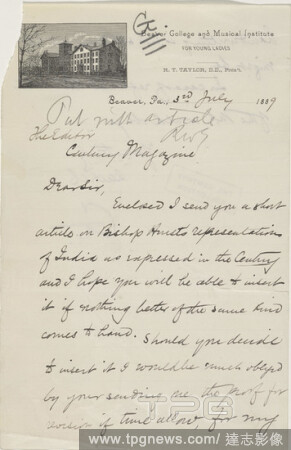 Gill
Beaver College and Musical Institute
FOR YOUNG LADIES
R. T. TAYLOR, D.D., Pres't.
Beaver, Pa., 3rd July 1889
Put with article
RWG
The Editor
Century Magazine
Dear Sir,
Enclosed I send you a short
article on Bishop Hurst's representations
of India as expressed in the Century
and I hope you will be able to insert
it if nothing better of the same kind
comes to hand. Should you decide
to insert it I would be much obliged
by your sending me the proof for
revision if time allow, for my
TPG
www.tpgnews.com / 達志影像